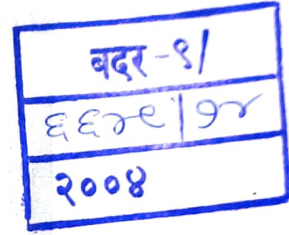 बदर -९/
६६४९|१४
२००४